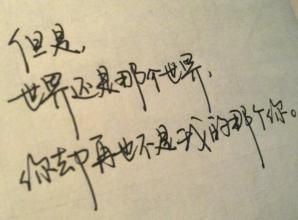 但是，
世界还是那个世界，
你却再也不是我的那个你。